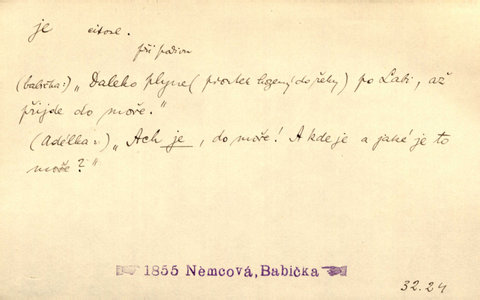 je citosl.
při podivu
(babička:) „Daleko plyne (proutek hozený do řeky) po Labi, až
přijde do moře."
(Adélka:) „Ach je, do moře! A kde je a jaké je to
moře?"
1855 Němcová, Babička
32.24